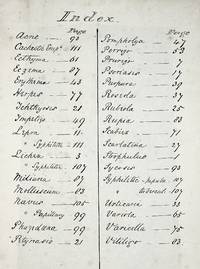 Index.
Page
Acne — 92
Cachectic — 111
Ecthyma — 61
Eczema — 87
Erythema — 43
Herpes — 77
Ichthyosis — 21
Impetigo — 49
Lepra — 11
" Syphilitic — 111
Lichen — 3
" Syphilitic — 107
Miliaria — 87
Molluscum — 83
Naevus — 105
" Papillary — 99
Phagedaena — 99
Pityriasis — 21
Page
Pompholyx — 47
Porrigo — 53
Prurigo — 7
Psoriasis — 17
Purpura — 39
Roseola — 37
Rubeola — 25
Rupia — 83
Scabies — 71
Scarlatina — 27
Strophulus — 1
Sycosis — 93
Syphilitic papula — 107
" tubercul. 107
Urticaria — 33
Variola — 65
Varicella — 75
Vitiligo — 83